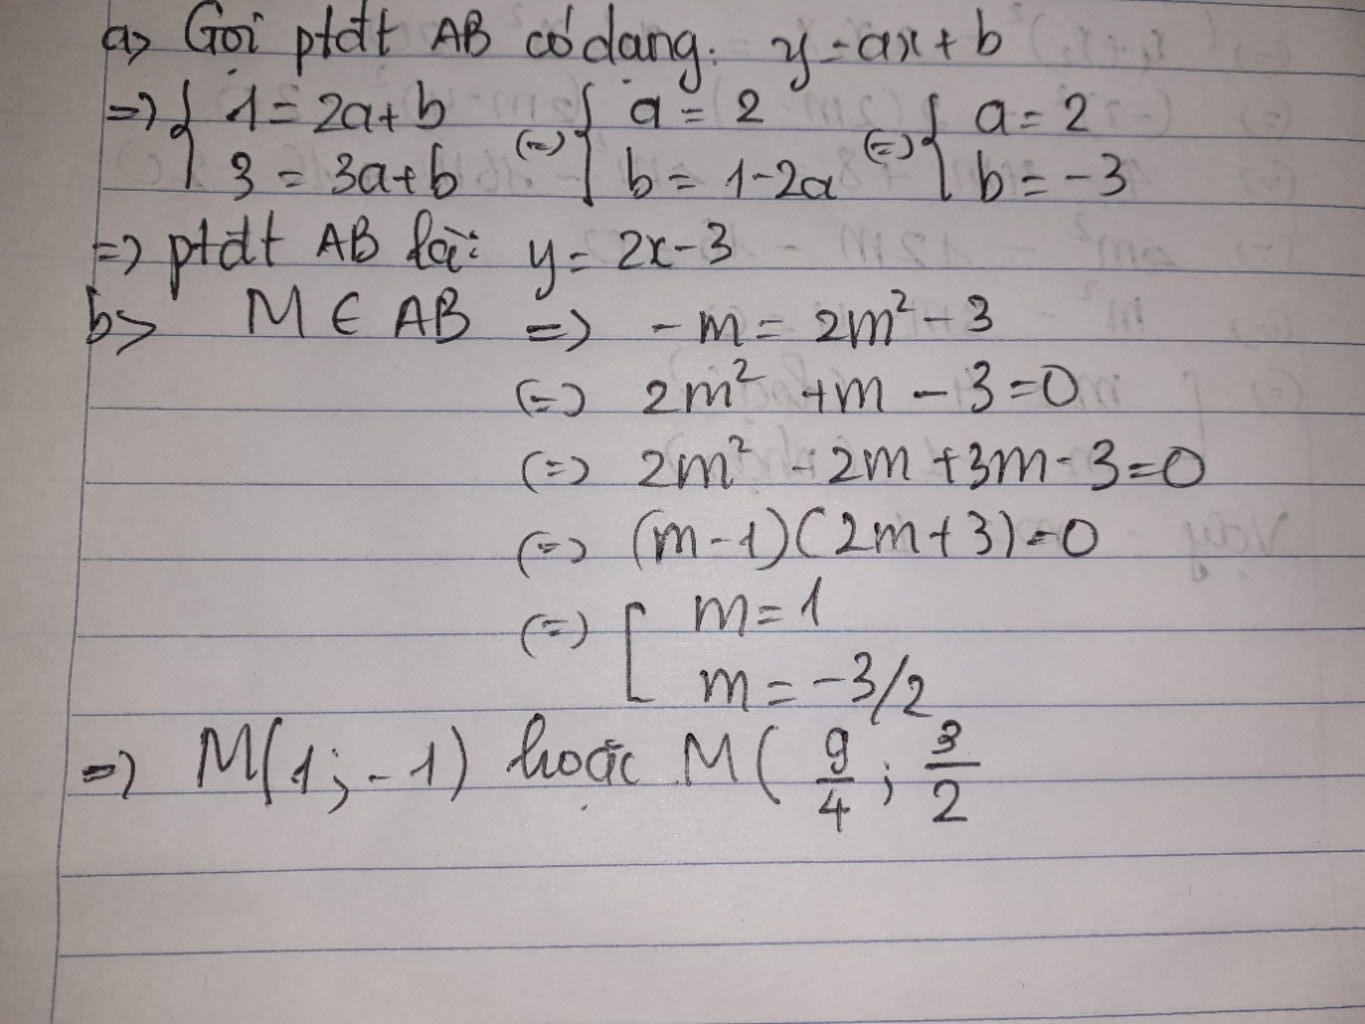 a> Gọi ptđt AB có dạng: y = ax + b
=> { 1 = 2a + b (=) { a = 2 (=) { a = 2
3 = 3a + b b = 1 - 2a b = -3
=> ptđt AB là: y = 2x - 3
b> M ∈ AB => -m = 2m² - 3
(=) 2m² + m - 3 = 0
(=) 2m² - 2m + 3m - 3 = 0
(=) (m - 1)(2m + 3) = 0
(=) [ m = 1
m = -3/2
=> M(1; -1) hoặc M( 9/4 ; 3/2